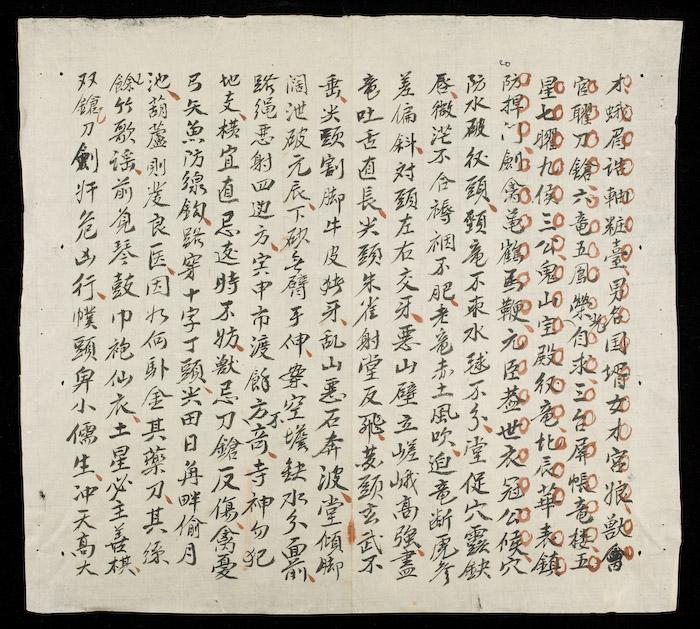 木蛾眉誥軸粧臺男各国壻女水宮娘獸會
官躍刀鎗六竜五鳳榮身求三台屏帳竜楼五
星七曜九侯三公鬼山宮殿後竜北辰華表鎮
防捍门劍禽亀鶴馬鞭元臣蓋世衣冠公候穴
防水破後頭頸竜不束水球不分堂促穴靈鈌
唇微茫不合褥裀不肥老竜赤土風吹迫竜断虎參
差偏斜对頭左右交牙悪山壁立嵯峨高強盡
竜吐舌直長尖頭朱雀射堂反飛葖頭玄武不
垂尖頭割脚牛皮猪牙乱山悪石奔波堂傾脚
濶泄破元辰下砂無臂手伸案空墻鈌水分面前
路绳悪射四迯方宾申市渡餘方不奇寺神勿犯
地支横宜直忌返時不妨獣忌刀鎗反傷禽憂
弓矢魚防線鈎路穿十字丁頭尖田日再畔偷月
池葫蘆則发良医因水何卧金其藥刀其絲
餘竹歌謡前筧琴鼓巾袍仙衣土星必主善棋
双鎗刀劍奸危凶行幞頭卑小儒生冲天高大